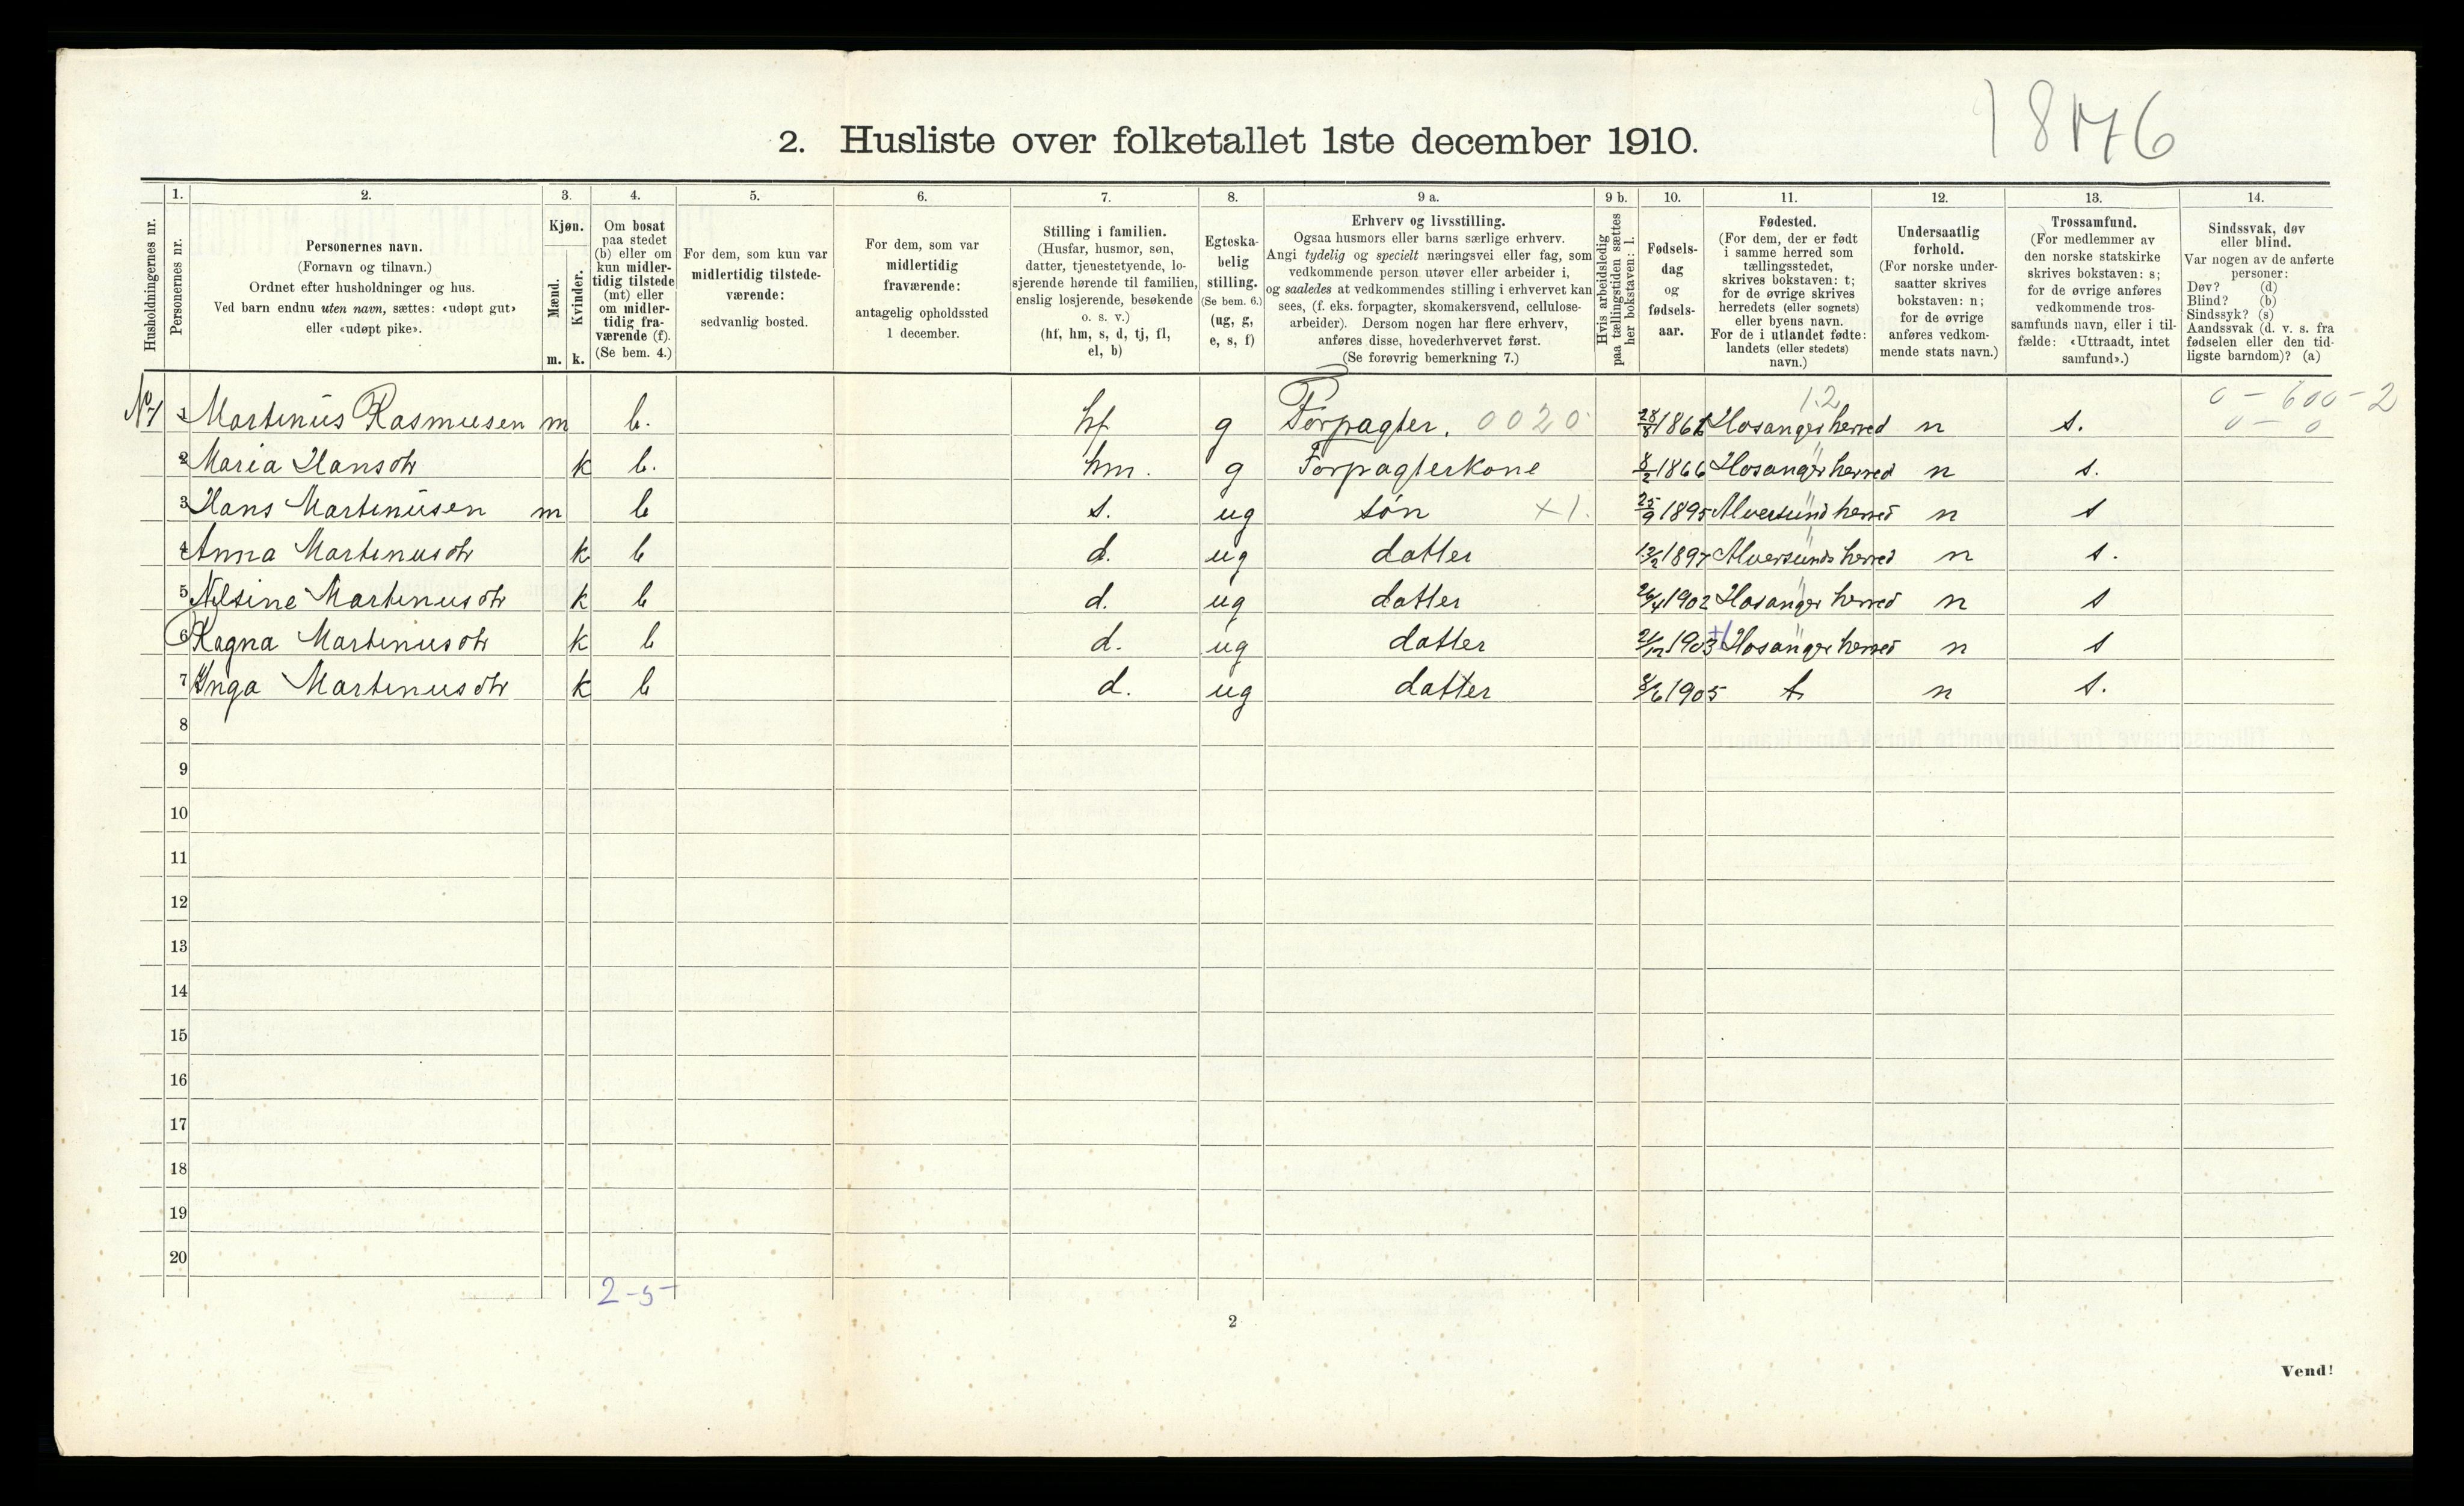 1876
2. Husliste over folketallet 1ste december 1910.
1. 2. 3. 4. 5. 6. 7. 8. 9 a. 9 b. 10. 11. 12. 13. 14.
Husholdningernes nr.
Personernes nr.
Personernes navn.
(Fornavn og tilnavn.)
Ordnet efter husholdninger og hus.
Ved barn endnu uten navn, sættes: «udøpt gut»
eller «udøpt pike».
Kjøn.
Mænd.
Kvinder.
m. k.
Om bosat
paa stedet
(b) eller om
kun midler-
tidig tilstede
(mt) eller
om midler-
tidig fra-
værende (f).
(Se bem. 4.)
For dem, som kun var
midlertidig tilstede-
værende:
sedvanlig bosted.
For dem, som var
midlertidig
fraværende:
antagelig opholdssted
1 december.
Stilling i familien.
(Husfar, husmor, søn,
datter, tjenestetyende, lo-
sjerende hørende til familien,
enslig losjerende, besøkende
o. s. v.)
(hf, hm, s, d, tj, fl,
el, b)
Egteska-
belig
stilling.
(Se bem. 6.)
(ug, g,
e, s, f)
Erhverv og livsstilling.
Ogsaa husmors eller barns særlige erhverv.
Angi tydelig og specielt næringsvei eller fag, som
vedkommende person utøver eller arbeider i,
og saaledes at vedkommendes stilling i erhvervet kan
sees, (f. eks. forpagter, skomakersvend, cellulose-
arbeider). Dersom nogen har flere erhverv,
anføres disse, hovederhvervet først.
(Se forøvrig bemerkning 7.)
Hvis arbeidsledig
paa tællingstiden sættes
her bokstaven: l.
Fødsels-
dag
og
fødsels-
aar.
Fødested.
(For dem, der er født
i samme herred som
tællingsstedet,
skrives bokstaven: t;
for de øvrige skrives
herredets (eller sognets)
eller byens navn.
For de i utlandet fødte:
landets (eller stedets)
navn.)
Undersaatlig
forhold.
(For norske under-
saatter skrives
bokstaven: n;
for de øvrige
anføres vedkom-
mende stats navn.)
Trossamfund.
(For medlemmer av
den norske statskirke
skrives bokstaven: s;
for de øvrige anføres
vedkommende tros-
samfunds navn, eller i til-
fælde: «Uttraadt, intet
samfund».)
Sindssvak, døv
eller blind.
Var nogen av de anførte
personer:
Døv? (d)
Blind? (b)
Sindssyk? (s)
Aandssvak (d. v. s. fra
fødselen eller den tid-
ligste barndom)? (a)
12 0 – 600 – 2
No 1 1 Martinus Rasmusen m b. hf g Forpagter. 0020 28/8 186 Hosanger herred n s. 0 – 0
2 Maria Hansdtr k b. hm. g Forpagterkone 8/2 1866 Hosanger herred n s.
3 Hans Martinusen m b s. ug søn ×1. 25/9 1895 Alversund herred n s
4 Anna Martinusdtr k b d. ug datter 13/2 1897 Alversunds herred n s.
5 Nilsine Martinusdtr k b d. ug datter 26/4 1902 Hosanger herred n s
6 Ragna Martinusdtr k b d. ug datter 21/12 1903 Hosanger herred n s
7 Inga Martinusdtr k b d. ug datter 8/6 1905 t n s.
8
9
10
11
12
13
14
15
16
17
18
19
20
2-5
2
Vend!